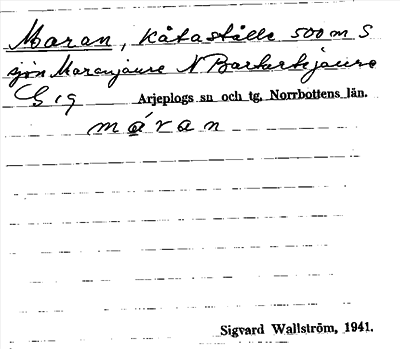 Maran, kåtaställe 500 m S
sjön Maranjaure N Barturtejaure
G 19 Arjeplogs sn och tg, Norrbottens län.
máran
Sigvard Wallström, 1941.